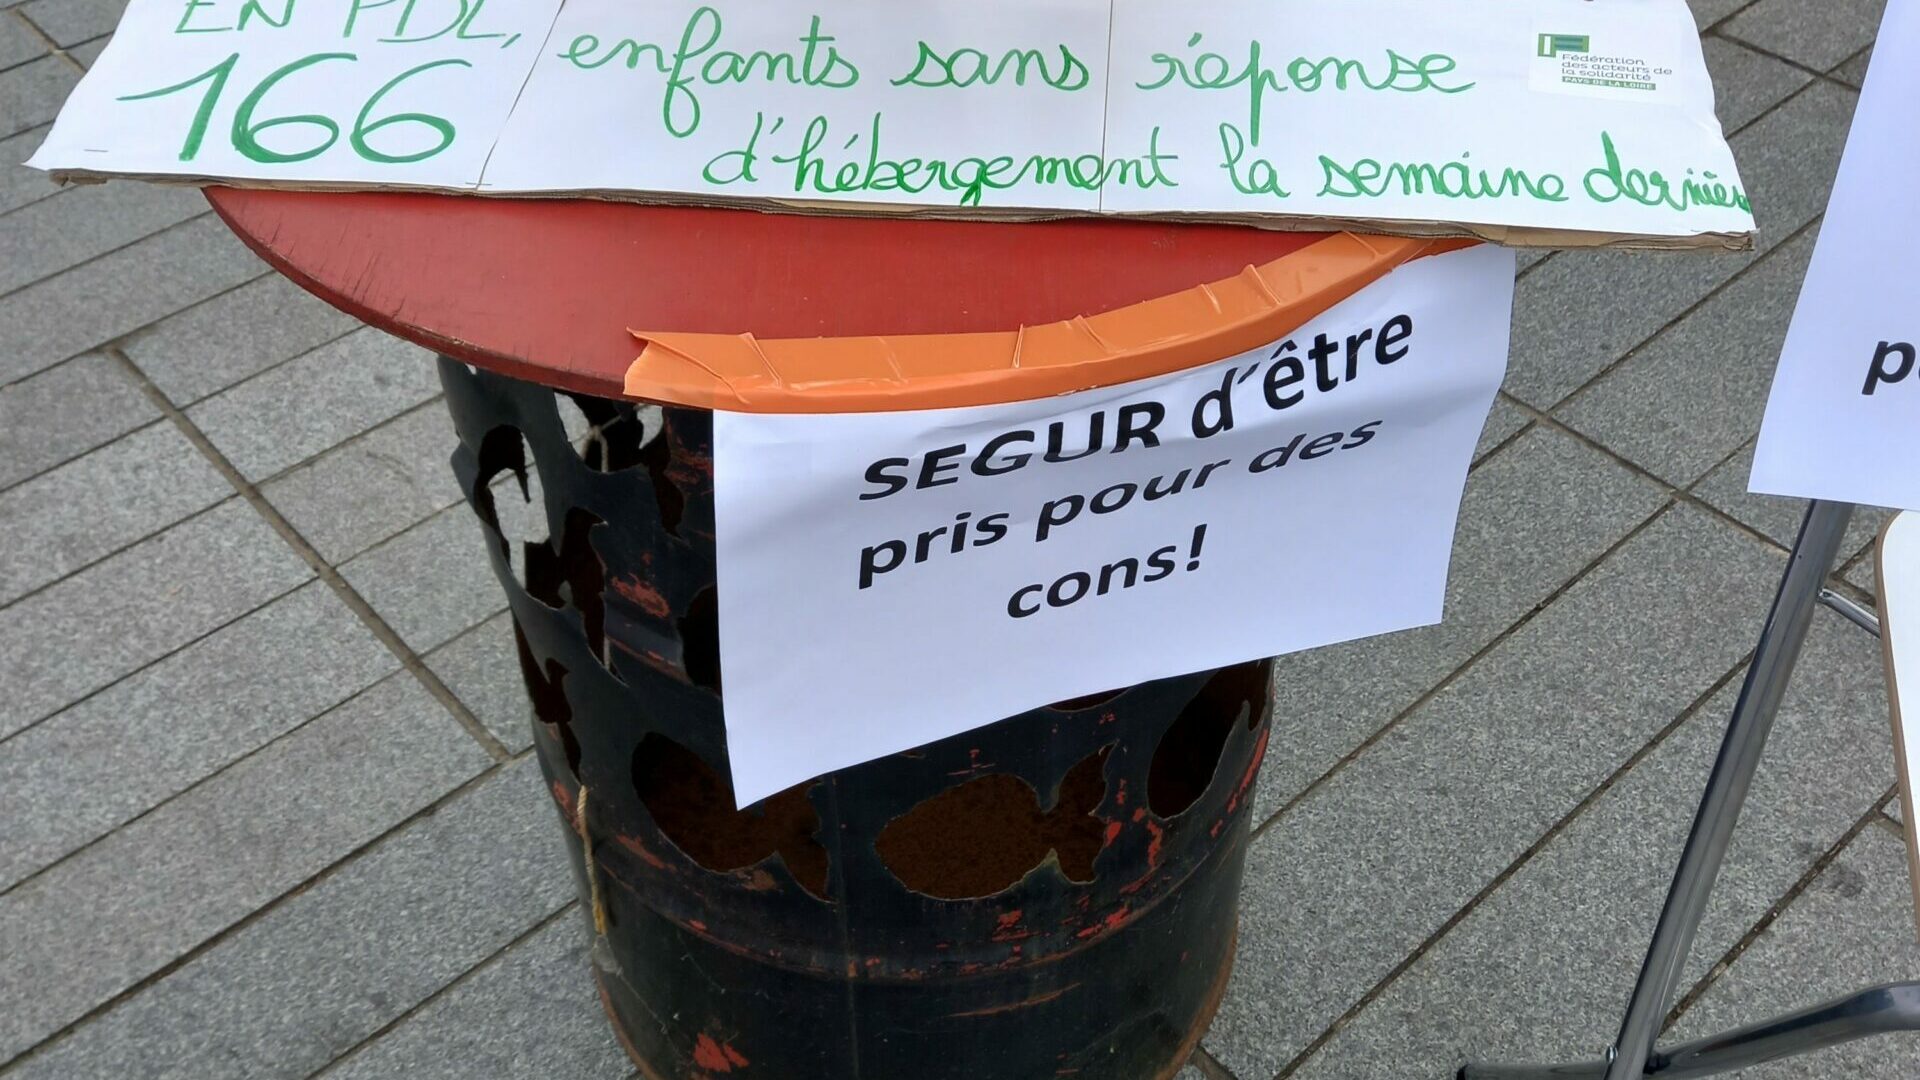 EN PDL,
166 enfants sans réponse
d'hébergement la semaine dernièr
Fédération
des acteurs de
la solidarité
PAYS DE LA LOIRE
SEGUR d'être
pris pour des
cons!